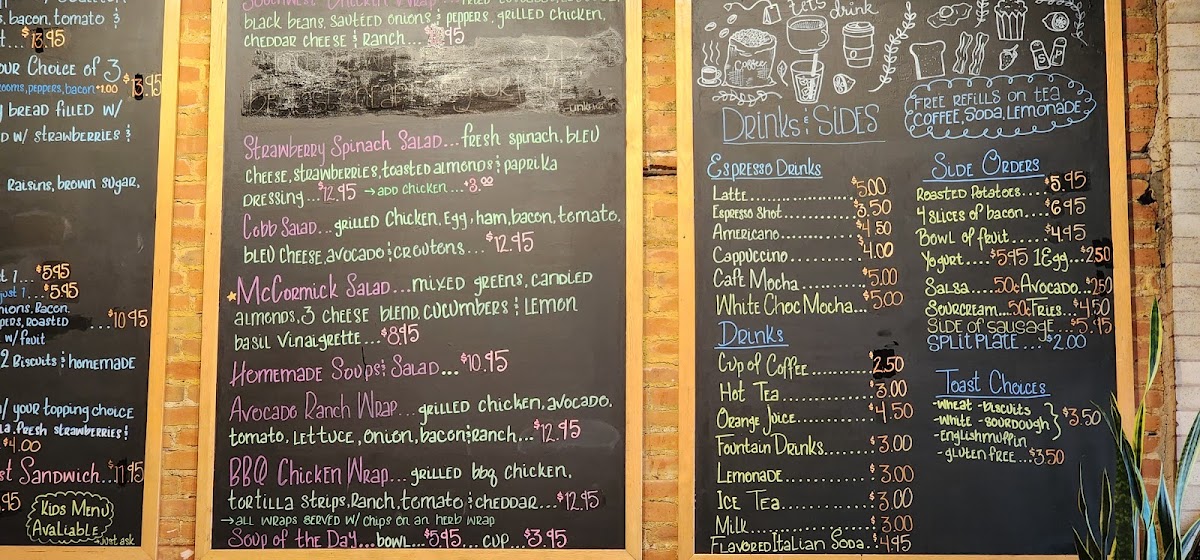 bacon, tomato &
$13.95
your Choice of 3
rooms, peppers, bacon +1.00 $13.95
bread filled w/
w/ strawberries &
Raisins, brown sugar,
1... $5.95
just 1... $5.95
onions, Bacon,
pers, Roasted ...$10.95
w/ fruit
2 Biscuits & homemade
w/ your topping choice
la, fresh strawberries &
$4.00
st Sandwich...$11.95
.95
Kids Menu
Avaliable
Just ask
Southwest Chicken Wrap...
black beans, sautéed onions & peppers, grilled chicken,
cheddar cheese & Ranch... .95
-unknown
Strawberry Spinach Salad...fresh spinach, bleu
cheese, strawberries, toasted almonds & paprika
dressing...$12.95 → add chicken...$3.00
Cobb Salad...grilled Chicken, Egg, ham, bacon, tomato,
bleu cheese, avocado & croutons...$12.95
McCormick Salad...mixed greens, candied
almonds, 3 cheese blend, cucumbers & lemon
basil vinaigrette...$8.95
Homemade Soups & Salad...$10.95
Avocado Ranch Wrap...grilled chicken, avocado,
tomato, lettuce, onion, bacon & ranch...$12.95
BBQ Chicken Wrap...grilled bbq chicken,
tortilla strips, Ranch, tomato & cheddar...$12.95
→ all wraps served w/ chips on an herb wrap
Soup of the Day...bowl...$5.95...cup...$3.95
let's drink
Coffee
Drinks & Sides
Free refills on tea
coffee, soda, lemonade
Espresso Drinks
Latte...$5.00
Espresso Shot...$3.50
Americano...$4.50
Cappuccino...$4.00
Café Mocha...$5.00
White Choc Mocha...$5.00
Drinks
Cup of Coffee...2.50
Hot Tea...$3.00
Orange Juice...$4.50
Fountain Drinks...$3.00
Lemonade...$3.00
Ice Tea...$3.00
Milk...$3.00
Flavored Italian Soda..$4.95
Side Orders
Roasted Potatoes....$5.95
4 slices of bacon....$6.95
Bowl of fruit.....$4.95
Yogurt....$5.95 1 Egg...$2.50
Salsa....50¢ Avocado...$2.50
Sourcream...50¢ Fries...$4.50
Side of sausage...$5.95
Split Plate...$2.00
Toast Choices
-wheat -biscuits
-white -sourdough } $3.50
-english muffin
-gluten free...$3.50